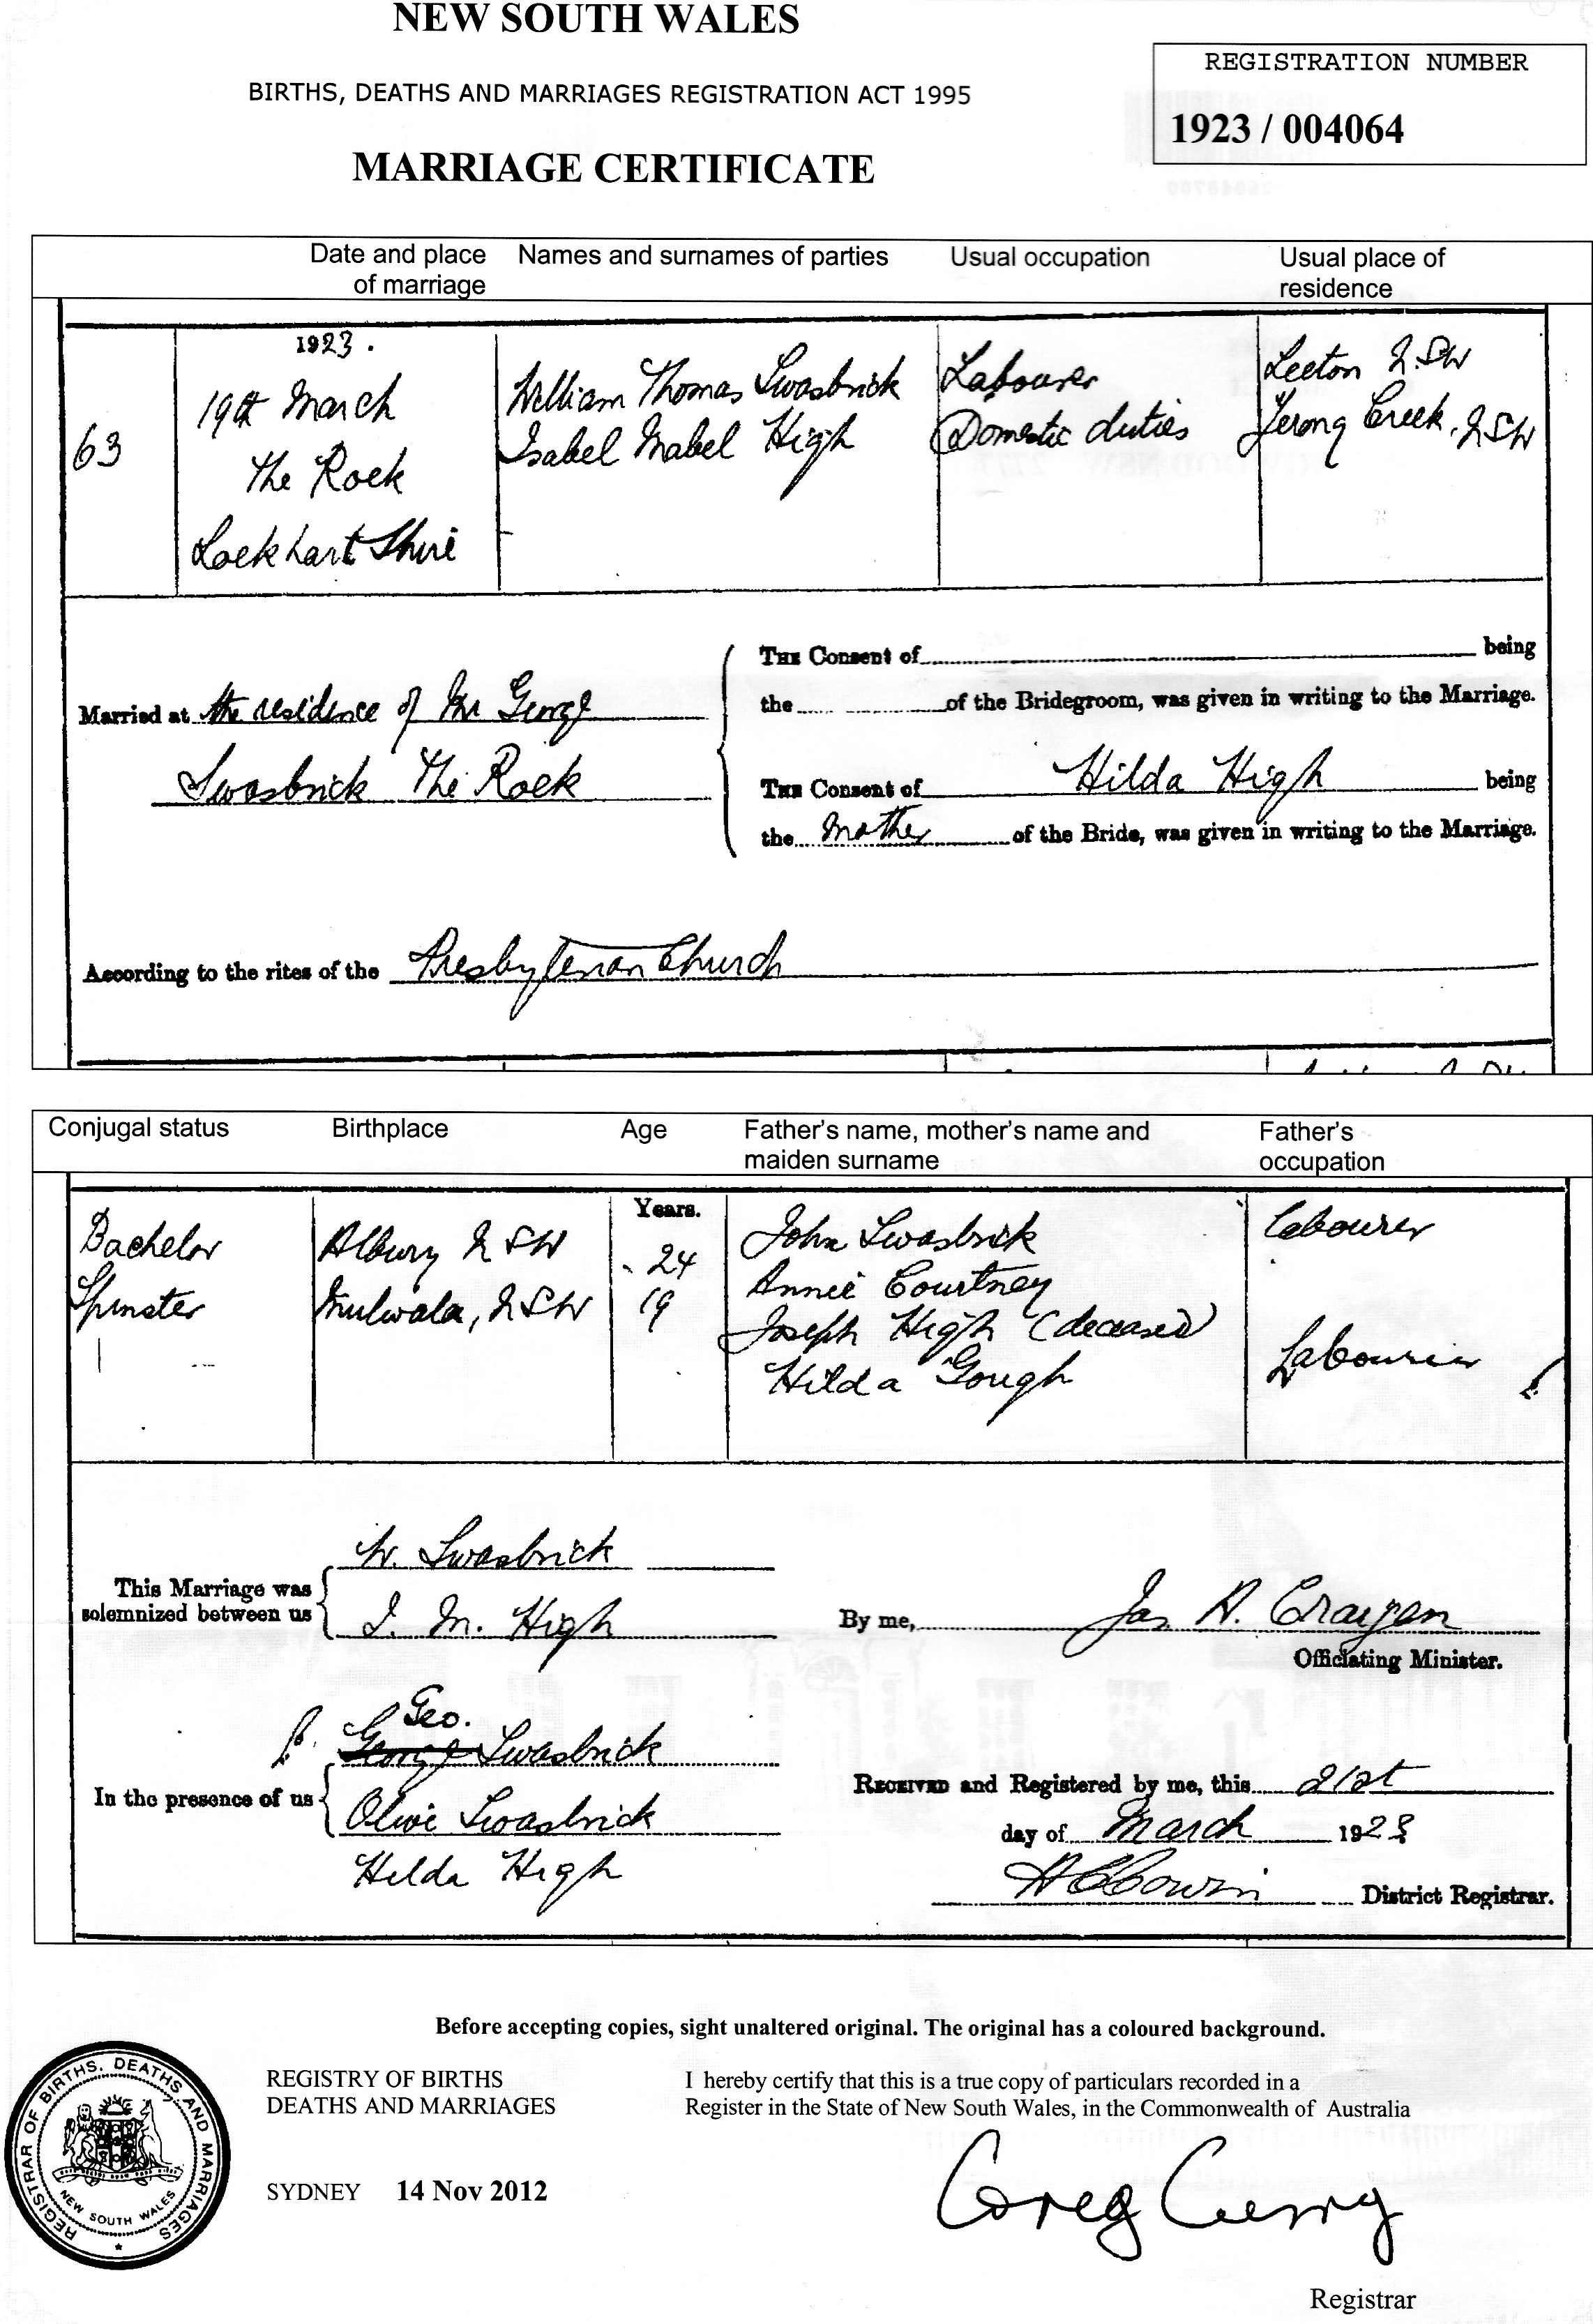 NEW SOUTH WALES
BIRTHS, DEATHS AND MARRIAGES REGISTRATION ACT 1995
MARRIAGE CERTIFICATE
REGISTRATION NUMBER
1923 / 004064
Date and place of marriage
Names and surnames of parties
Usual occupation
Usual place of residence
63
1923.
19th March
The Rock
Lockhart Shire
William Thomas Swasbrick
Isabel Mabel High
Labourer
Domestic duties
Leeton N.SW
Yerong Creek, NSW
Married at the residence of Mr George
Swasbrick The Rock
THE Consent of being
the of the Bridegroom, was given in writing to the Marriage.
THE Consent of Hilda High being
the Mother of the Bride, was given in writing to the Marriage.
According to the rites of the Presbyterian Church
Conjugal status
Birthplace
Age
Father's name, mother's name and maiden surname
Father's occupation
Years.
Bachelor
Spinster
Albury NSW
Mulwala, NSW
24
19
John Swasbrick
Annie Courtney
Joseph High (deceased)
Hilda Gough
Labourer
Labourer
This Marriage was solemnized between us
W. Swasbrick
I. M. High
By me, Jas A.
Officiating Minister.
In the presence of us
Geo.
George Swasbrick
Olive Swasbrick
Hilda High
RECEIVED and Registered by me, this 21st
day of March 1923
District Registrar.
Before accepting copies, sight unaltered original. The original has a coloured background.
REGISTRAR OF BIRTHS, DEATHS AND MARRIAGES
NEW SOUTH WALES
REGISTRY OF BIRTHS
DEATHS AND MARRIAGES
SYDNEY 14 Nov 2012
I hereby certify that this is a true copy of particulars recorded in a
Register in the State of New South Wales, in the Commonwealth of Australia
Greg Curry
Registrar